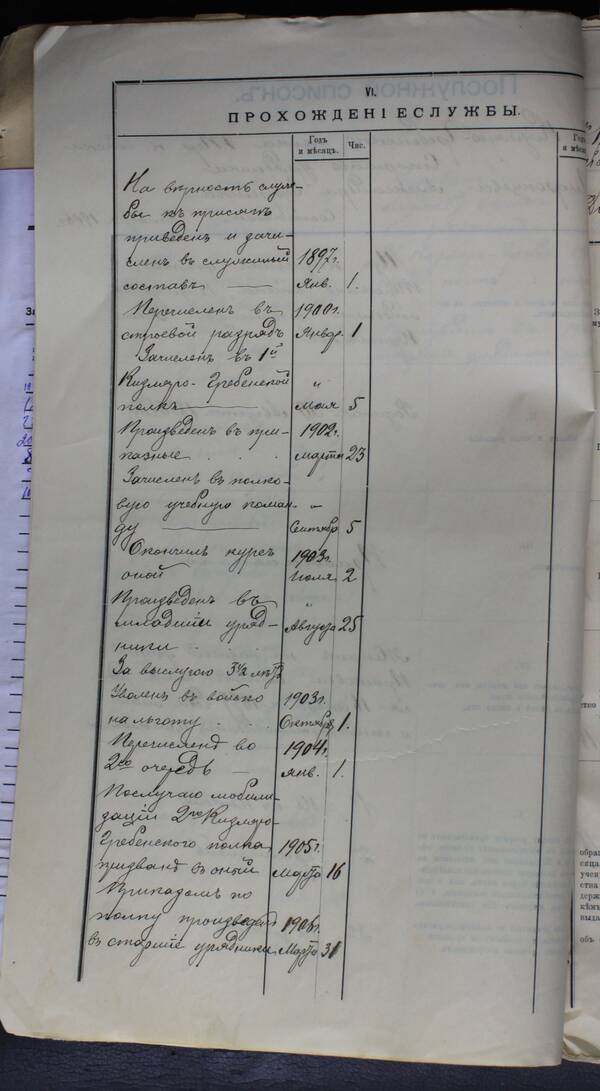 VI.
ПРОХОЖДЕНІЕ СЛУЖБЫ.
Годъ и мѣсяцъ.
Чис.
На вѣрность служ-
бы къ присягѣ
приведенъ и зачи-
сленъ въ служилый 1897г.
составъ — Янв. 1.
Перечисленъ въ 1900г.
строевой разрядъ Январ. 1
Зачисленъ въ 1й
Кизляро-Гребенской "
полкъ — Мая 5
Произведенъ въ при- 1902г.
казные . . . Марта 23
Зачисленъ въ полко-
вую учебную коман- "
ду — Сентябр 5
Окончилъ курсъ 1903г.
оной Іюля 2
Произведенъ въ "
младшіе уряд- Августа 25
ники . . .
За выслугою 3½ лѣтъ
Уволенъ въ войско 1903г.
на льготу . . . Октября 1.
Перечисленъ во 1904г.
2ю очередь — Янв. 1.
По случаю мобили-
заціи 2го Кизляро-
Гребенского полка 1905г.
призванъ въ оный Марта 16
Приказомъ по
полку произведенъ 1906г.
въ старшіе урядники Марта 31